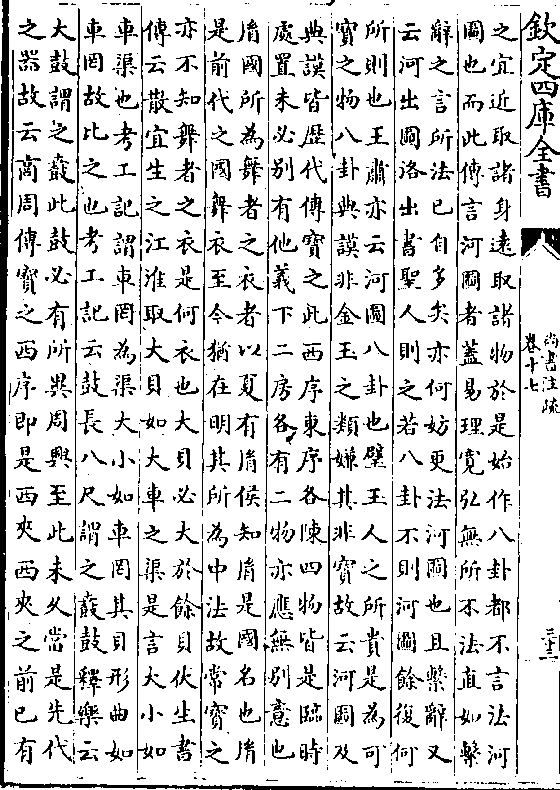 欽定四庫全書
尚書注疏
卷十七
三十二
之宜近取諸身遠取諸物於是始作八卦都不言法河
圖也而此傳言河圖者蓋易理寛弘無所不法直如繫
辭之言所法已自多矣亦何妨更法河圖也且繫辭又
云河出圖洛出書聖人則之若八卦不則河圖餘復何
所則也王肅亦云河圖八卦也璧玉人之所貴是為可
寶之物八卦典謨非金玉之類嫌其非寶故云河圖及
典謨皆歷代傳寶之此西序東序各陳四物皆是臨時
處置未必别有他義下二房各有二物亦應無别意也
胤國所為舞者之衣者以夏有胤侯知胤是國名也胤
是前代之國舞衣至今猶在明其所為中法故常寶之
亦不知舞者之衣是何衣也大貝必大於餘貝伏生書
傳云散宜生之江淮取大貝如大車之渠是言大小如
車渠也考工記謂車罔為渠大小如車罔其貝形曲如
車罔故比之也考工記云鼓長八尺謂之鼖鼓釋樂云
大鼓謂之鼖此鼓必有所異周興至此未久當是先代
之器故云商周傳寶之西序即是西夾西夾之前已有